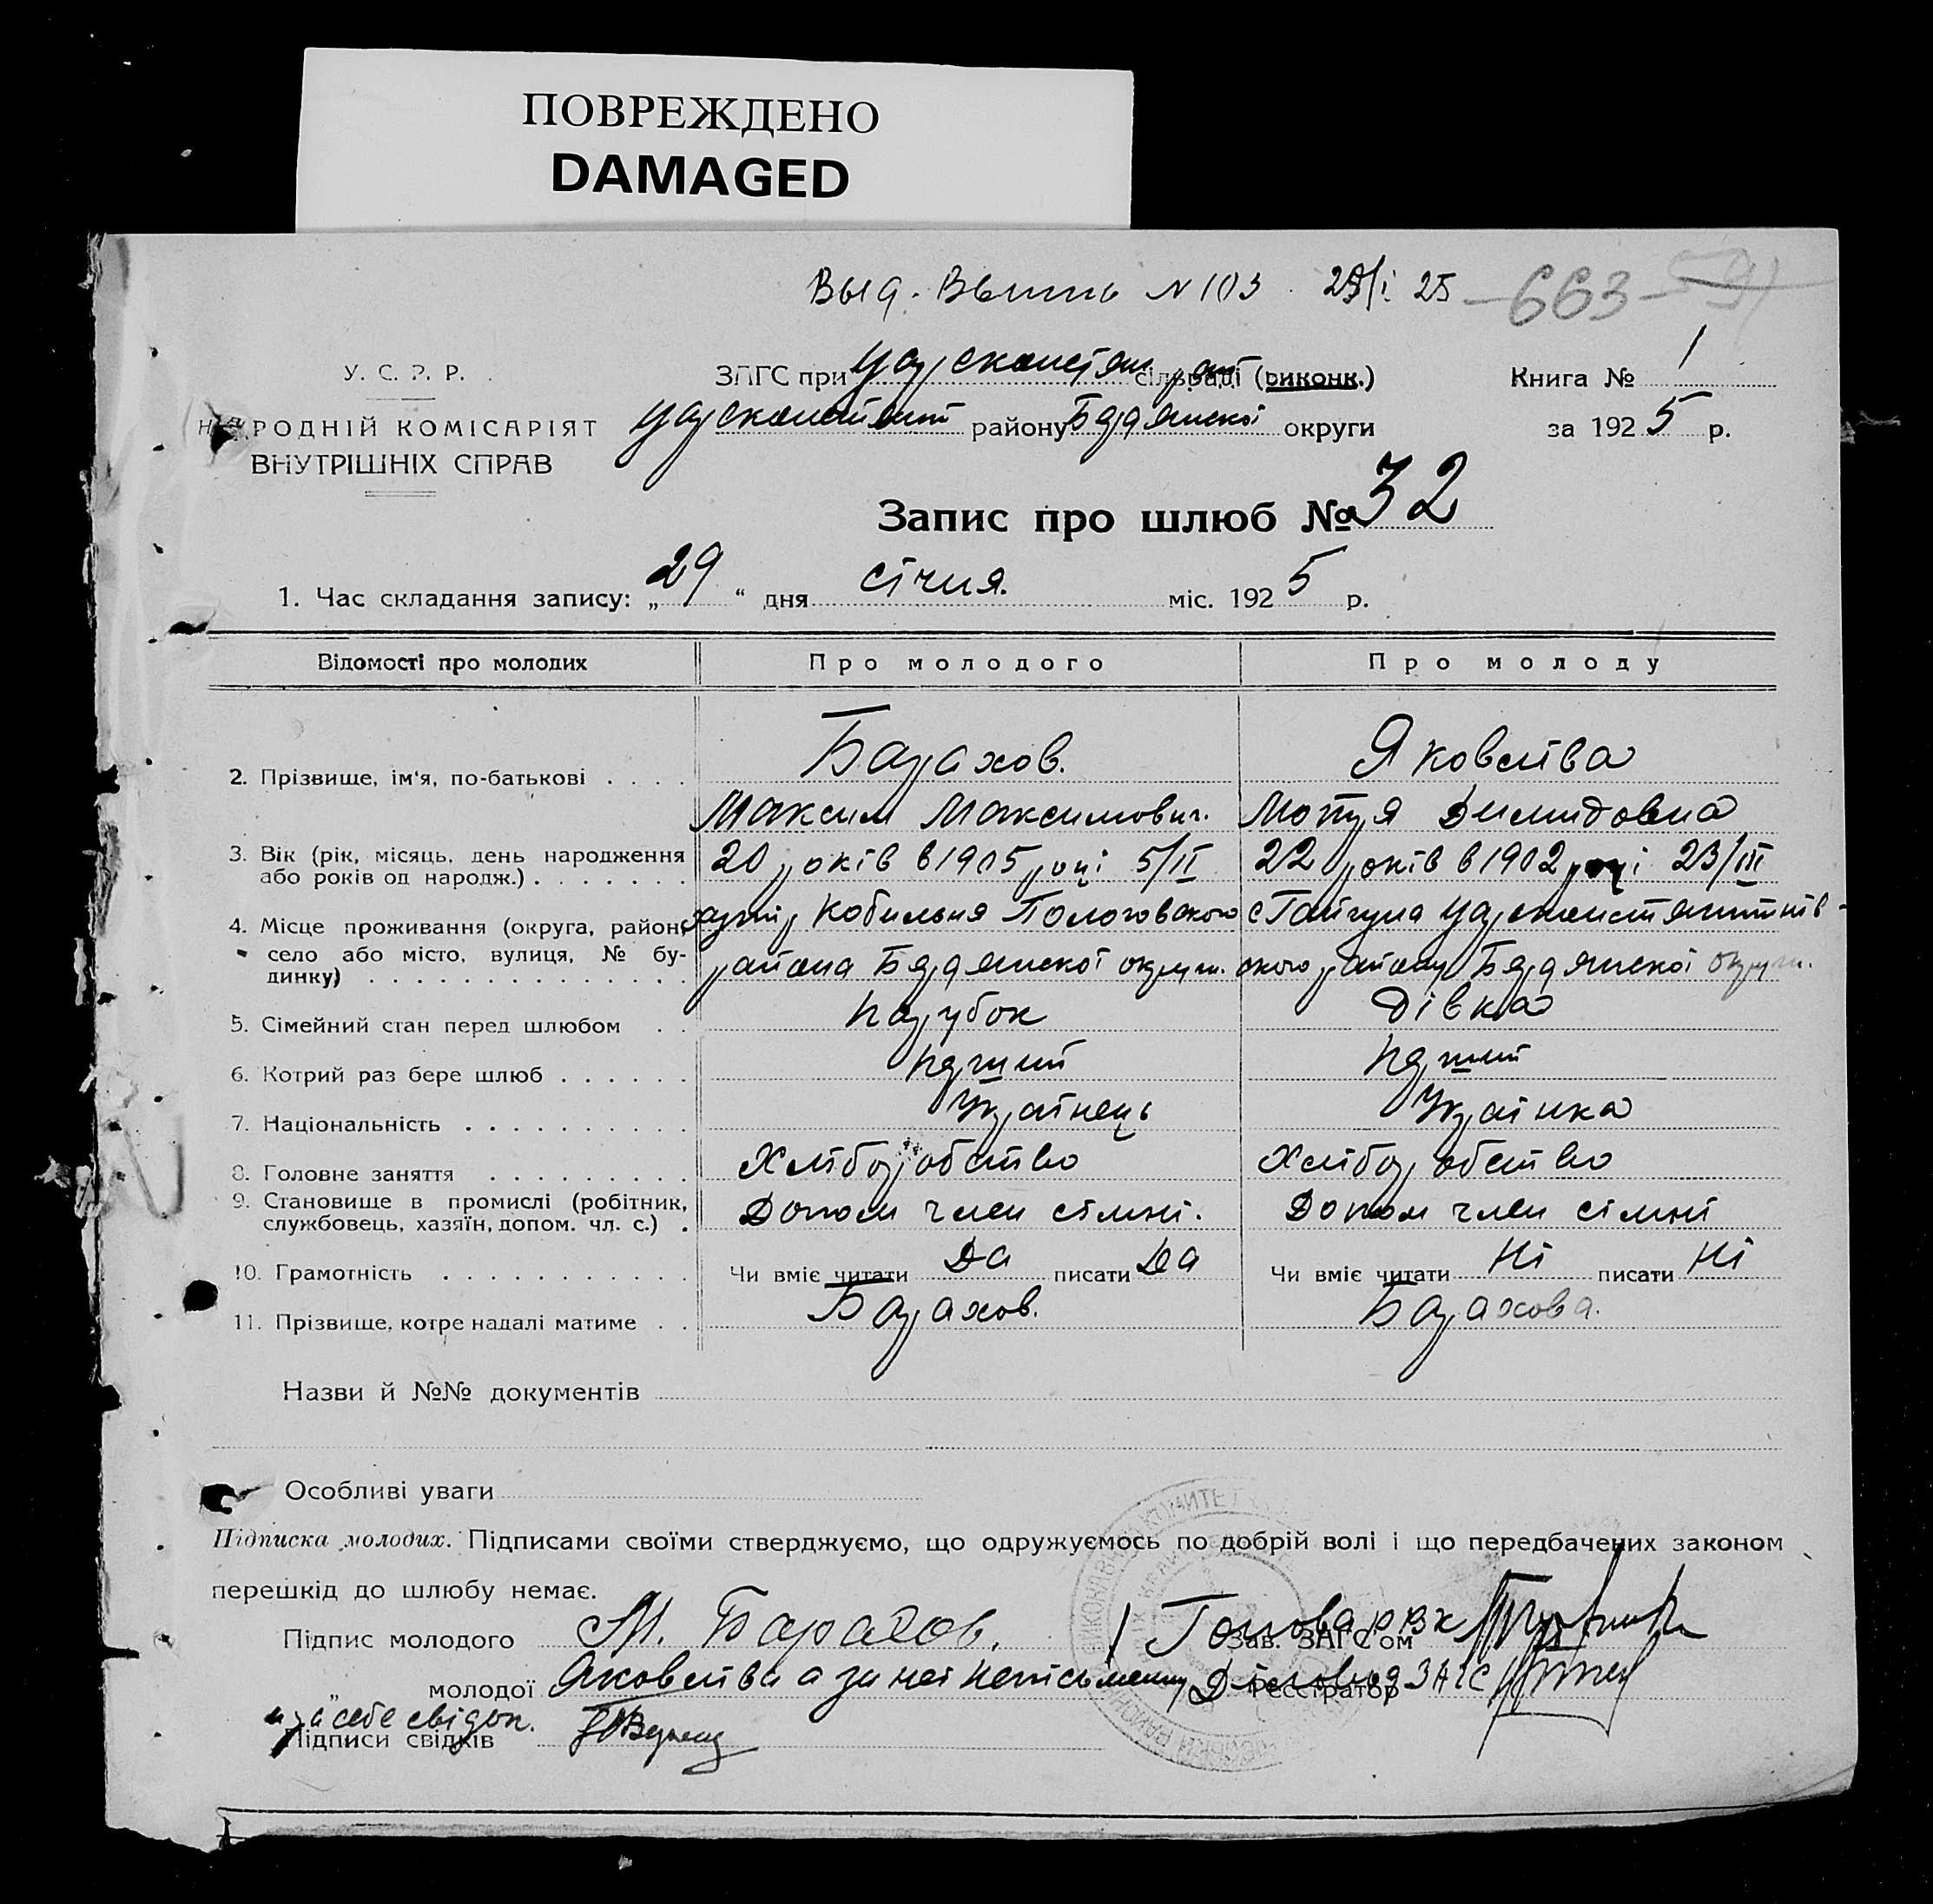 ПОВРЕЖДЕНО
DAMAGED
Выд. N 103 29/I 25 - 663 -
У. С. Р. Р.
ЗАГС при Царсконстян рай сільраді (виконк.)
Книга № 1
НАРОДНІЙ КОМІСАРІЯТ
ВНУТРІШНІХ СПРАВ
Царсконстянт району Бердянскої округи
за 1925 р.
Запис про шлюб № 32
1. Час складання запису: „29“ дня січня. міс. 1925 р.
Відомості про молодих
Про молодого
Про молоду
2. Прізвище, ім'я, по-батькові . . . .
Барахов.
Максим Максимович.
Яковлива
Мотря Димидовна
3. Вік (рік, місяць, день народження
або років од народж.) . . . . . . .
20 років в 1905 році 5/II
22 років в 1902 році 23/III
4. Місце проживання (округа, район,
село або місто, вулиця, № бу-
динку) . . . . . . . . . . . . . .
хутір Кобильня Пологовского
района Бердянскої округи.
с Гайчула Царсконстянтинів-
ского району Бердянскої округи.
5. Сімейний стан перед шлюбом . .
парубок
дівка
6. Котрий раз бере шлюб . . . . . .
перший
перший
7. Національність . . . . . . . . . .
Українець
Українка
8. Головне заняття . . . . . . . . .
Хліборобство
Хліборобство
9. Становище в промислі (робітник,
службовець, хазяїн, допом. чл. с.) .
Допом член сімні.
Допом член сімні
10. Грамотність . . . . . . . . . . .
Чи вміє читати Да писати Да
Чи вміє читати Ні писати Ні
11. Прізвище, котре надалі матиме . .
Барахов.
Барахова.
Назви й №№ документів
Особливі уваги
Підписка молодих. Підписами своїми стверджуємо, що одружуємось по добрій волі і що передбачених законом
перешкід до шлюбу немає.
Підпис молодого М. Барахов.
Голова РВК
Зав. ЗАГС'ом
„ молодої Яковлива а за неї неписьменну
Діловод ЗАГС
Реєстратор
и за себе свідок.
Підписи свідків